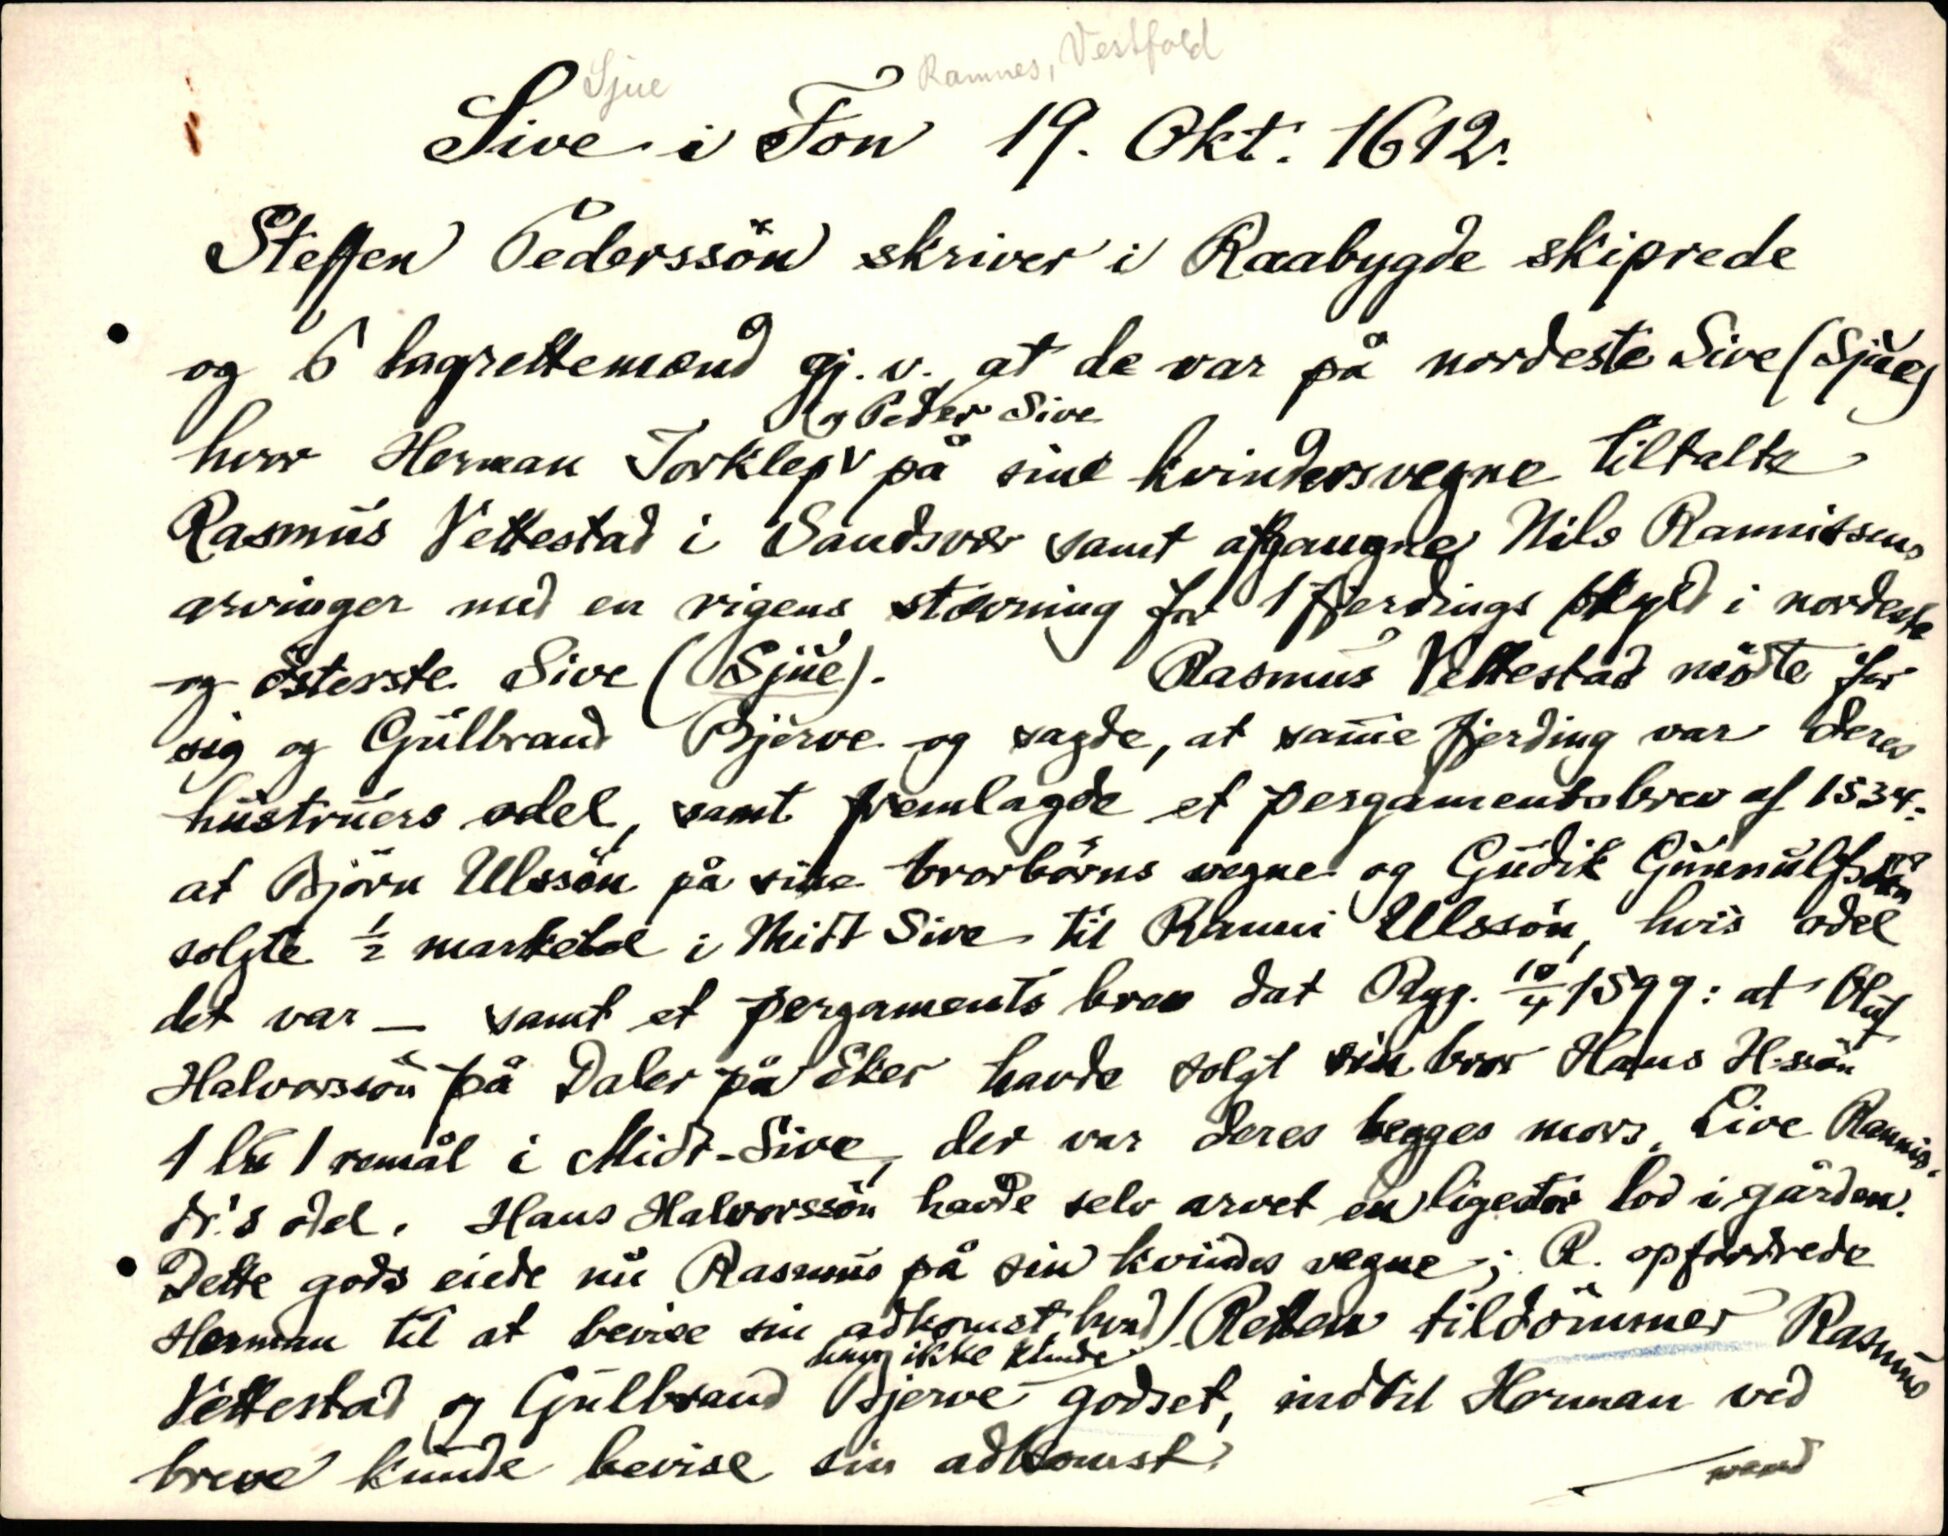 Sjue Ramnes, Vestfold
Sive i Fon 19. Okt. 1612.
Steffen Pederssön skriver i Raabygde skiprede
og 6 lagrettemænd gj. v. at de var på nordeste Sive (Sjue)
og Peder Sive
hvor Herman Torklep på sine kvinders vegne tiltalte
Rasmus Vettestad i Sandsvær samt afgangne Nils Rannissens
arvinger med en rigens stævning for 1 fjerdings skyld i nordeste
og österste Sive (Sjue). Rasmus Vettestad mödte for
sig og Gulbrand Bjerve og sagde, at samme fjerding var deres
hustruers odel, samt fremlagde et pergamentsbrev af 1534:
at Björn Ulssön på sine brorbörns vegne og Gudik Gunnulfssön
solgte ½ markebol i Midt Sive til Ranni Ulssön, hvis odel
det var — samt et pergaments brev dat Ryg. 10/4 1599: at Oluf
Halvorssön på Daler på Eker havde solgt sin bror Hans H-ssön
1 lb 1 remål i Midt-Sive, der var deres begges mors, Live Rannis-
dr.'s odel. Hans Halvorssön havde selv arvet en ligestor lod i gården.
Dette gods eiede nu Rasmus på sin kvindes vegne; R. opfordrede
Herman til at bevise sin adkomst, hvad
han ikke kunde. Retten tildömmer Rasmus
Vettestad og Gulbrand Bjerve godset, indtil Herman ved
breve kunde bevise sin adkomst.
vend